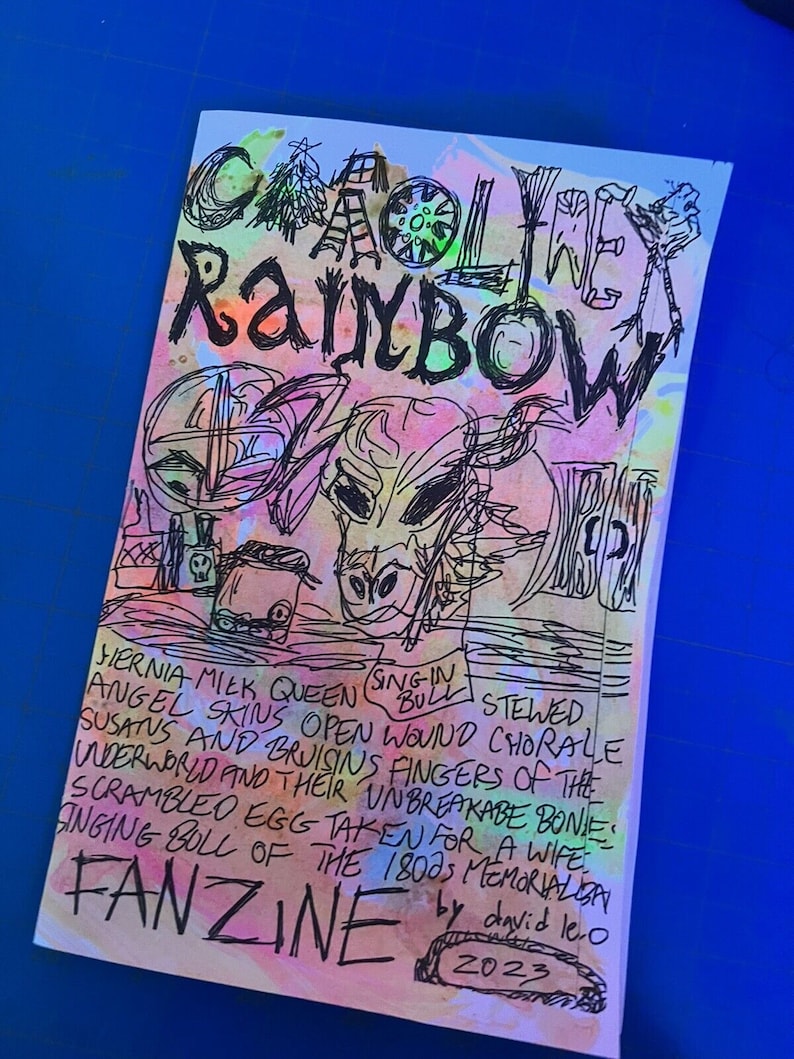 CAROLINER
RAINBOW
SINGIN
BULL
HERNIA MILK QUEEN STEWED
ANGEL SKINS OPEN WOUND CHORALE
SUSANS AND BRUISINS FINGERS OF THE
UNDERWORLD AND THEIR UNBREAKABE BONES
SCRAMBLED EGG TAKEN FOR A WIFE
SINGING BULL OF THE 1800s
FANZINE
by david
2023